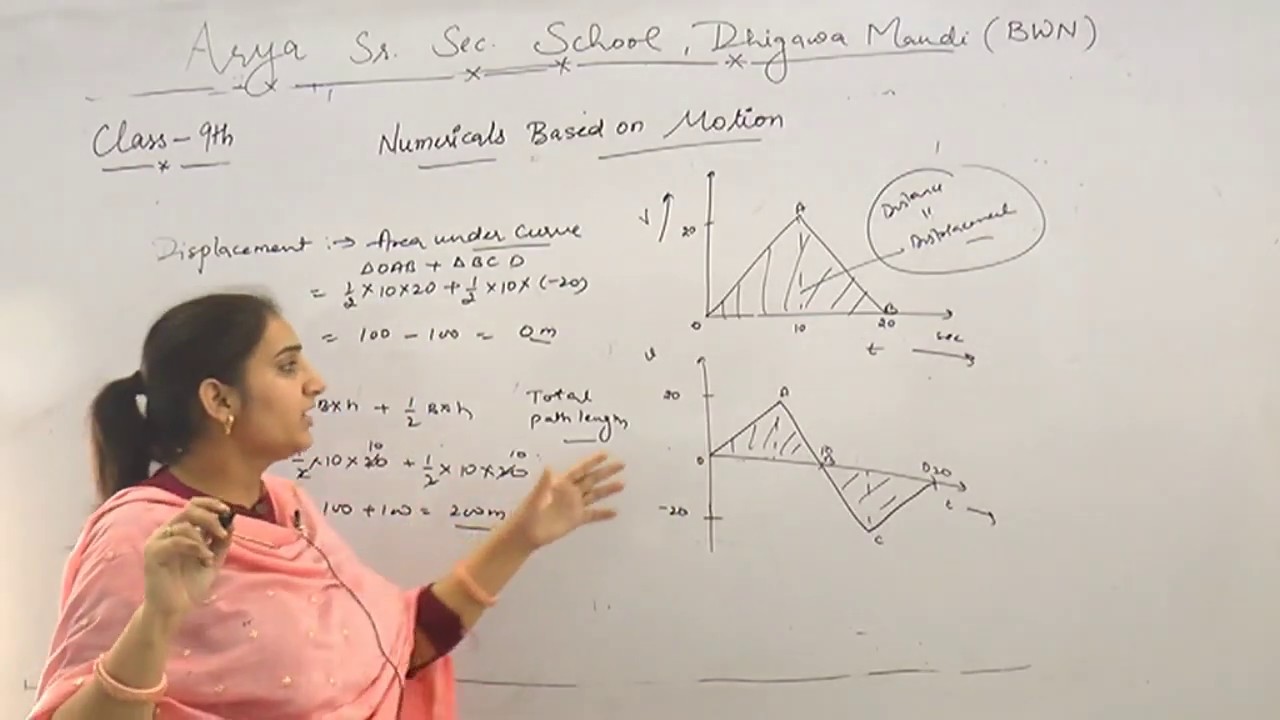 Arya Sr. Sec. School, Dhigawa Mandi (BWN)
Class - 9th
Numericals Based on Motion
Displacement :→ Area under Curve
ΔOAB + ΔBCD
= 1/2 × 10 × 20 + 1/2 × 10 × (-20)
= 100 - 100 = 0 m
B×h + 1/2 B×h
Total
path length
1/2 × 10 × 20 10 + 1/2 × 10 × 20 10
100 + 100 = 200m
V
20
A
O
10
B
20
sec
t
Distance
"
Displacement
20
A
O
10
B
D 20
t
-20
C